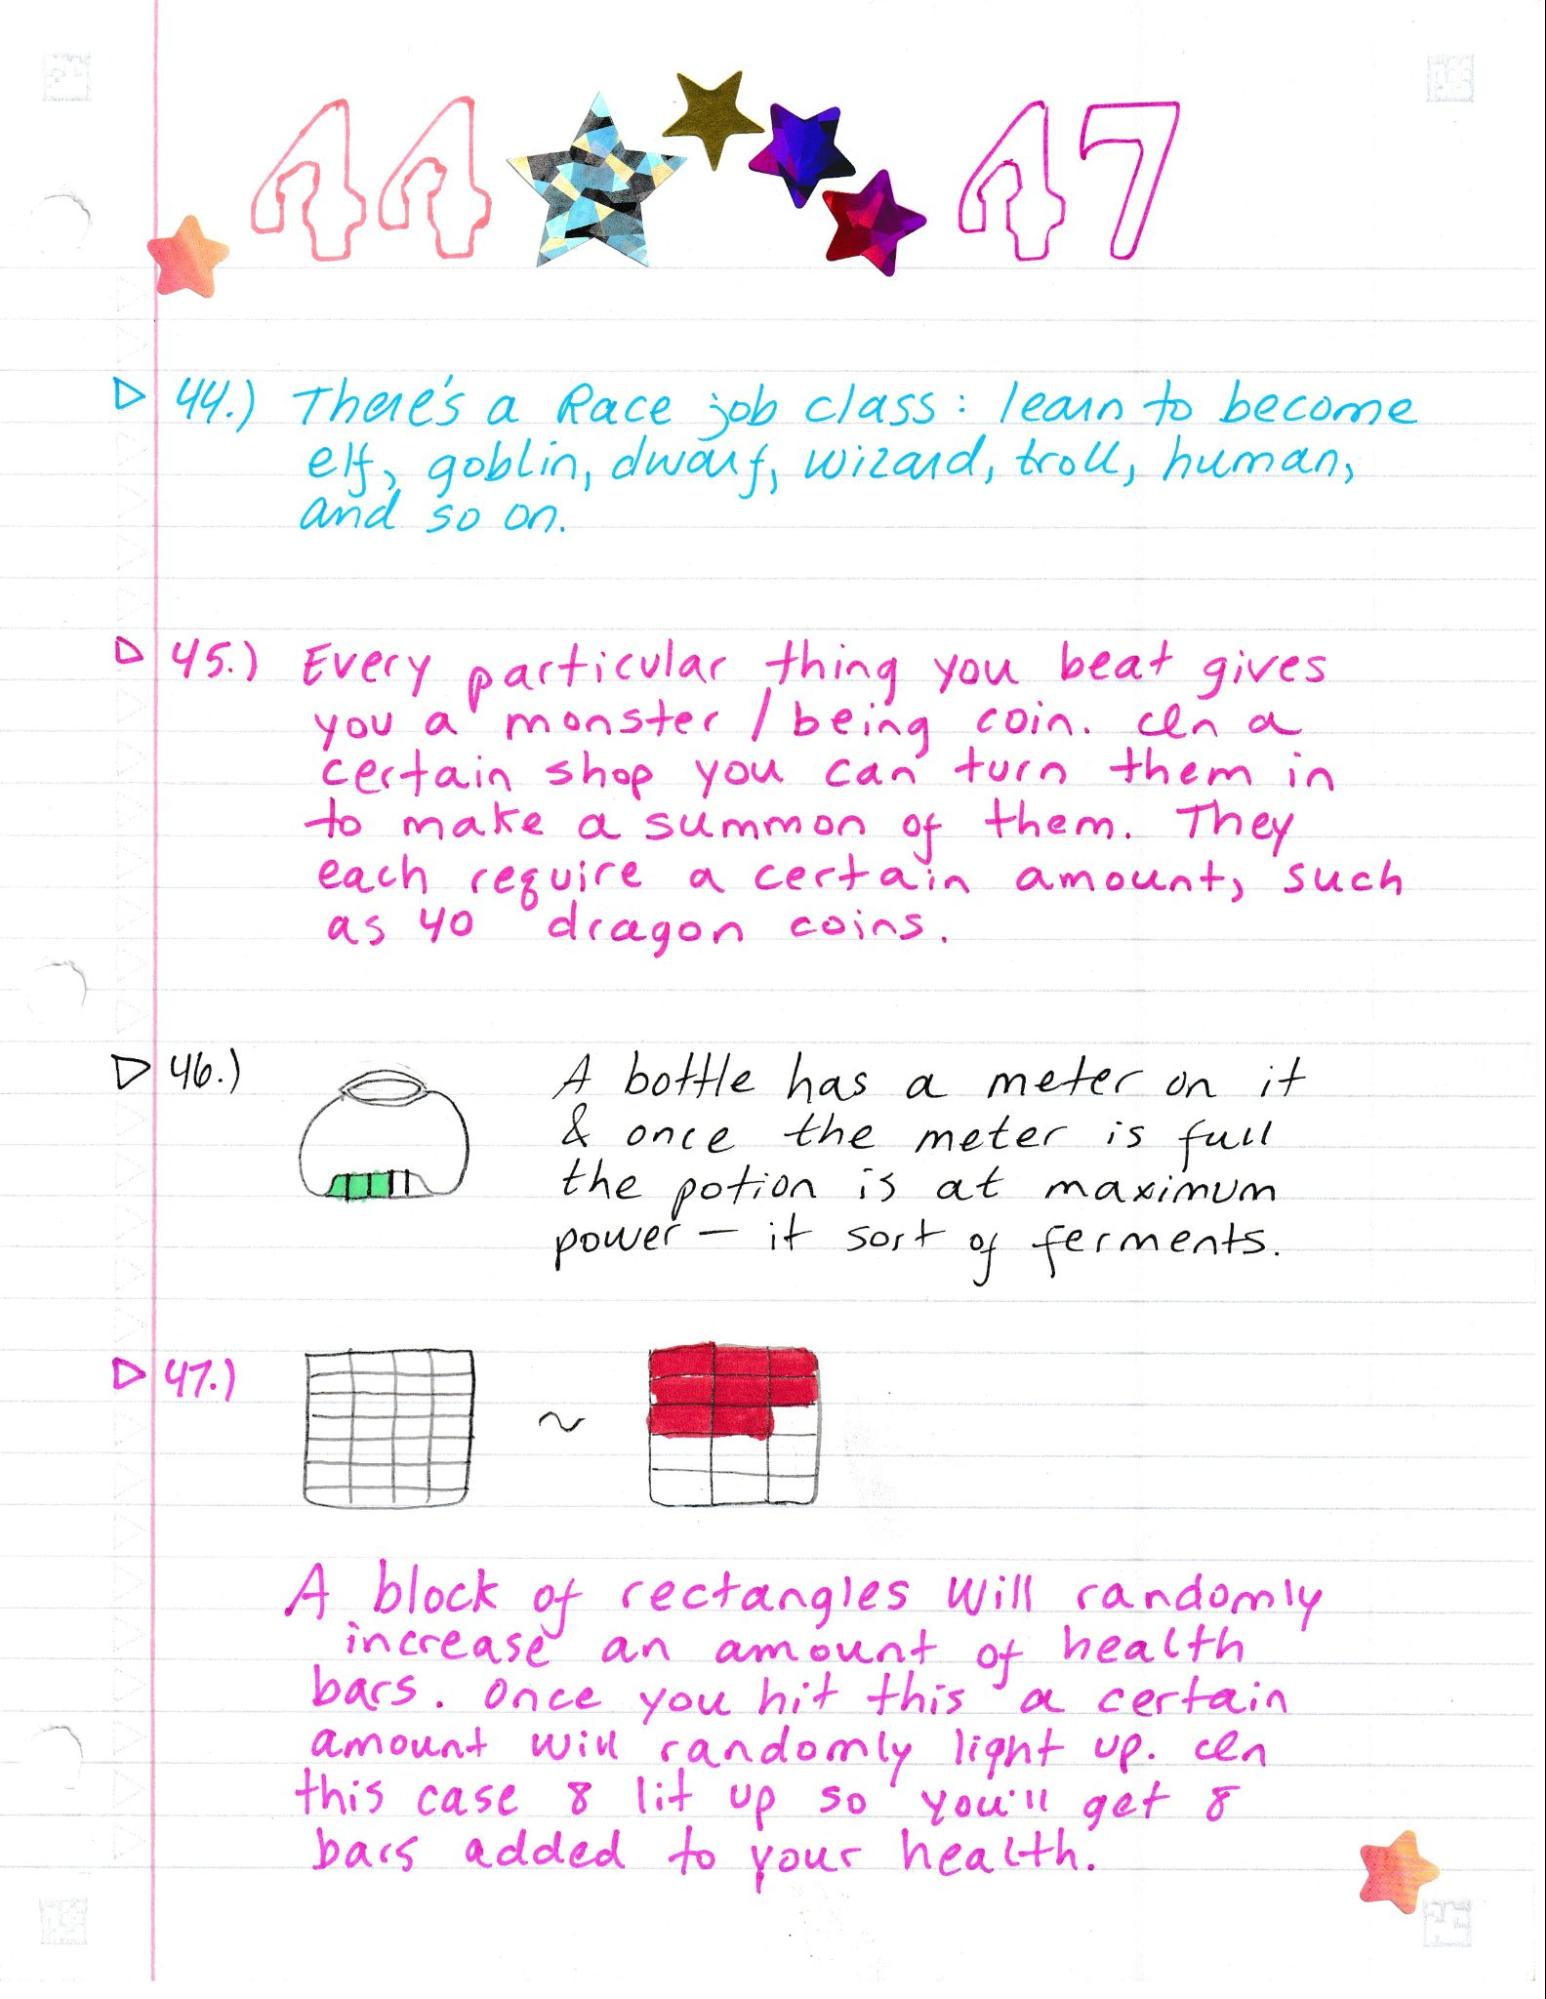 44 47
44.) There's a Race job class: learn to become
elf, goblin, dwarf, wizard, troll, human,
and so on.
45.) Every particular thing you beat gives
you a monster / being coin. In a
certain shop you can turn them in
to make a summon of them. They
each require a certain amount, such
as 40 dragon coins.
46.) A bottle has a meter on it
& once the meter is full
the potion is at maximum
power — it sort of ferments.
47.) ~
A block of rectangles will randomly
increase an amount of health
bars. Once you hit this a certain
amount will randomly light up. In
this case 8 lit up so you'll get 8
bars added to your health.